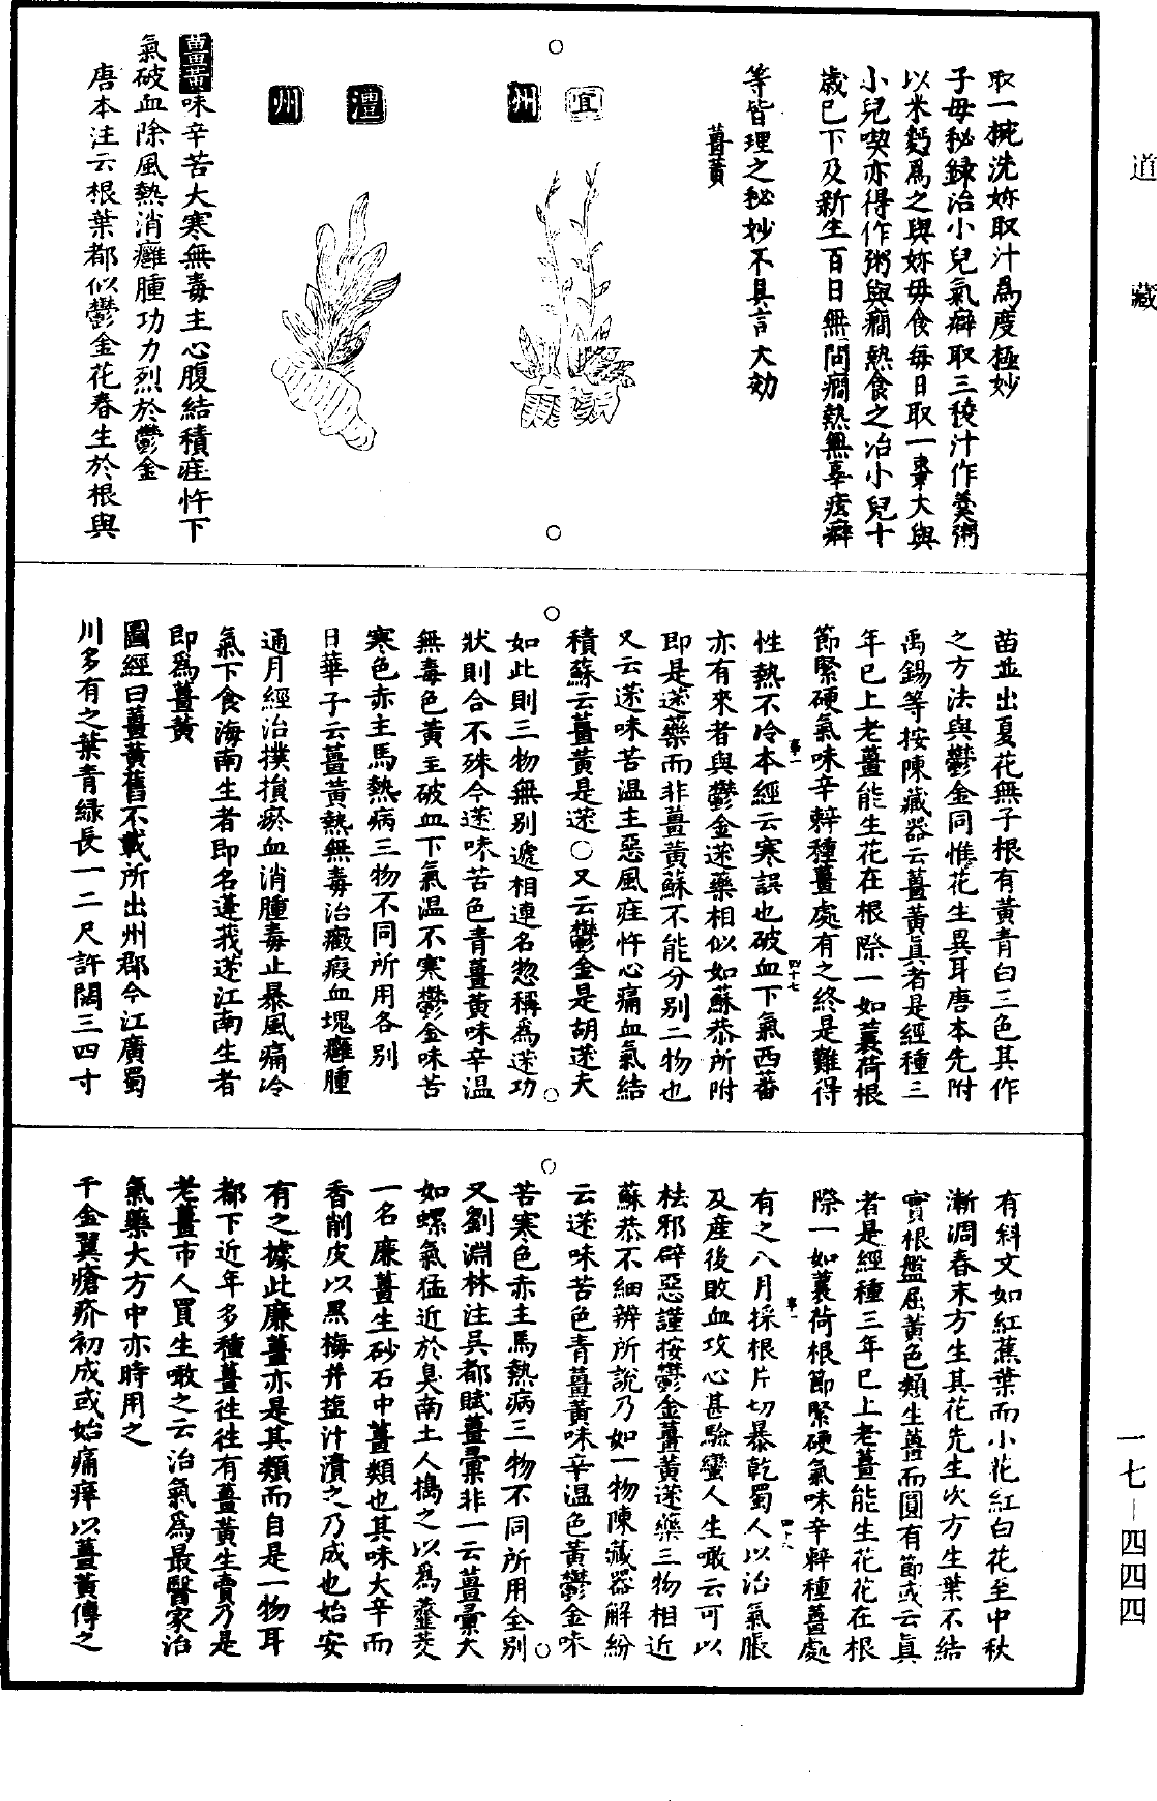 道藏
取一椀洗妳取汁爲度極妙
子母秘録治小兒氣癖取三稜汁作羹粥
以米麪爲之與妳母食每日取一棗大與
小兒喫亦得作粥與癎熱食之治小兒十
歲已下及新生百日無問癎熱無辜痃癖
等皆理之秘妙不具言大効
薑黃
宜州
澧州
薑黃味辛苦大寒無毒主心腹結積疰忤下
氣破血除風熱消癰腫功力烈於鬱金
唐本注云根葉都似鬱金花春生於根與
苗並出夏花無子根有黃青白三色其作
之方法與鬱金同惟花生異耳唐本先附
禹錫等按陳藏器云薑黃真者是經種三
年已上老薑能生花在根際一如蘘荷根
節緊硬氣味辛辣種薑處有之終是難得
性熱不冷本經云寒誤也破血下氣西蕃
亦有來者與鬱金蒁藥相似如蘇恭所附
即是蒁藥而非薑黃蘇不能分别二物也
又云蒁味苦温主惡風疰忤心痛血氣結
積蘇云薑黃是蒁○又云鬱金是胡蒁夫
如此則三物無别遞相連名惣稱爲蒁功
狀則合不殊今蒁味苦色青薑黃味辛温
無毒色黃主破血下氣温不寒鬱金味苦
寒色赤主馬熱病三物不同所用各别
日華子云薑黃熱無毒治癥瘕血塊癰腫
通月經治撲損瘀血消腫毒止暴風痛冷
氣下食海南生者即名蓬莪蒁江南生者
即爲薑黃
圖經曰薑黃舊不載所出州郡今江廣蜀
川多有之葉青緑長一二尺許闊三四寸
有斜文如紅蕉葉而小花紅白花至中秋
漸凋春末方生其花先生次方生葉不結
實根盤屈黃色類生薑而圓有節或云真
者是經種三年已上老薑能生花花在根
際一如蘘荷根節緊硬氣味辛辣種薑處
有之八月採根片切暴乾蜀人以治氣脹
及産後敗血攻心甚驗蠻人生噉云可以
祛邪辟惡謹按鬱金薑黃蒁藥三物相近
蘇恭不細辨所說乃如一物陳藏器解紛
云蒁味苦色青薑黃味辛温色黃鬱金味
苦寒色赤主馬熱病三物不同所用全别
又劉淵林注吳都賦薑彙非一云薑彙大
如螺氣猛近於臭南土人搗之以爲虀茭
一名廉薑生砂石中薑類也其味大辛而
香削皮以黑梅并塩汁漬之乃成也始安
有之據此廉薑亦是其類而自是一物耳
都下近年多種薑往往有薑黃生賣乃是
老薑市人買生噉之云治氣爲最醫家治
氣藥大方中亦時用之
千金翼瘡疥初成或始痛痒以薑黃傅之
一七－四四四